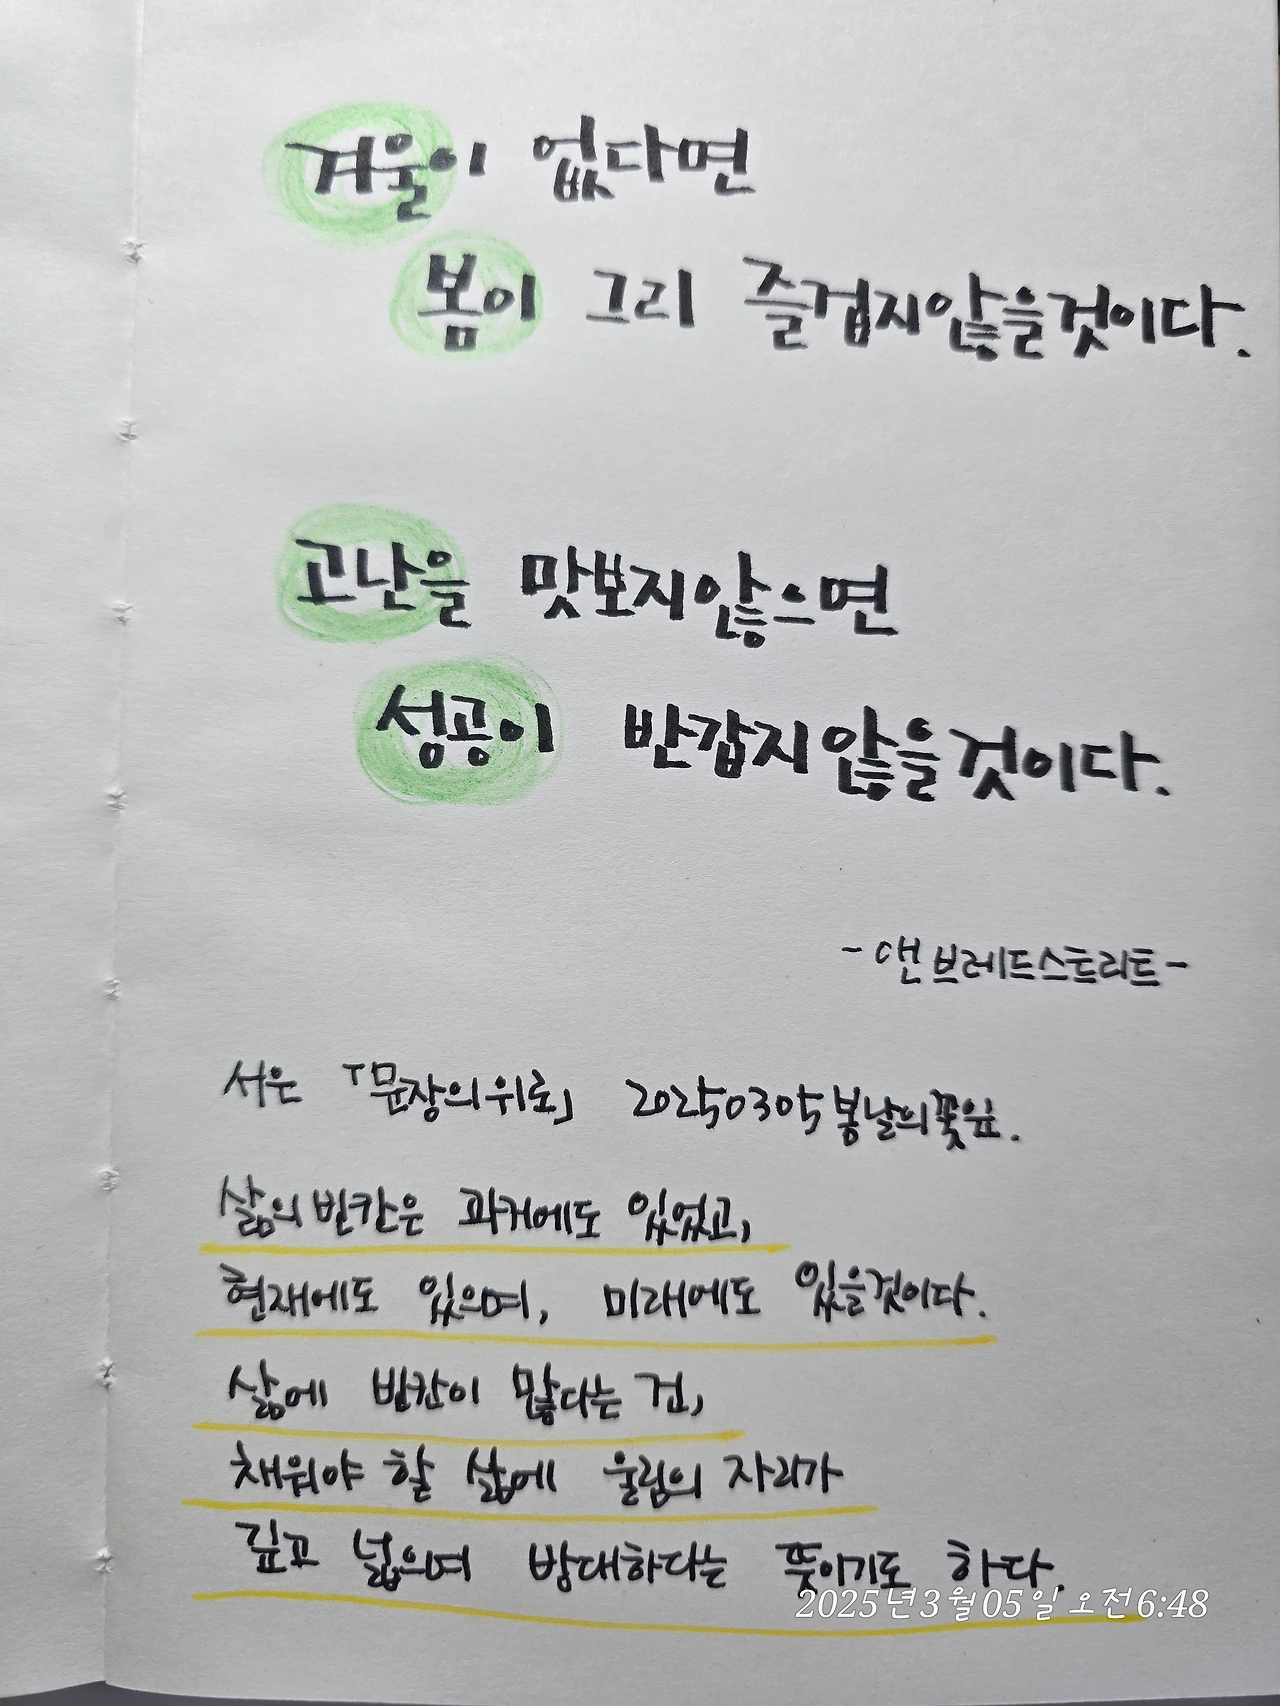 겨울이 없다면
봄이 그리 즐겁지않을것이다.
고난을 맛보지않으면
성공이 반갑지않을것이다.
-앤 브레드스트리트-
서은 「문장의위로」 20250305봄날의꽃잎.
삶의빈칸은 과거에도 있었고,
현재에도 있으며, 미래에도 있을것이다.
삶에 빈칸이 많다는 건,
채워야 할 삶에 울림의 자리가
깊고 넓으며 방대하다는 뜻이기도 하다.
2025년3월05일 오전6:48